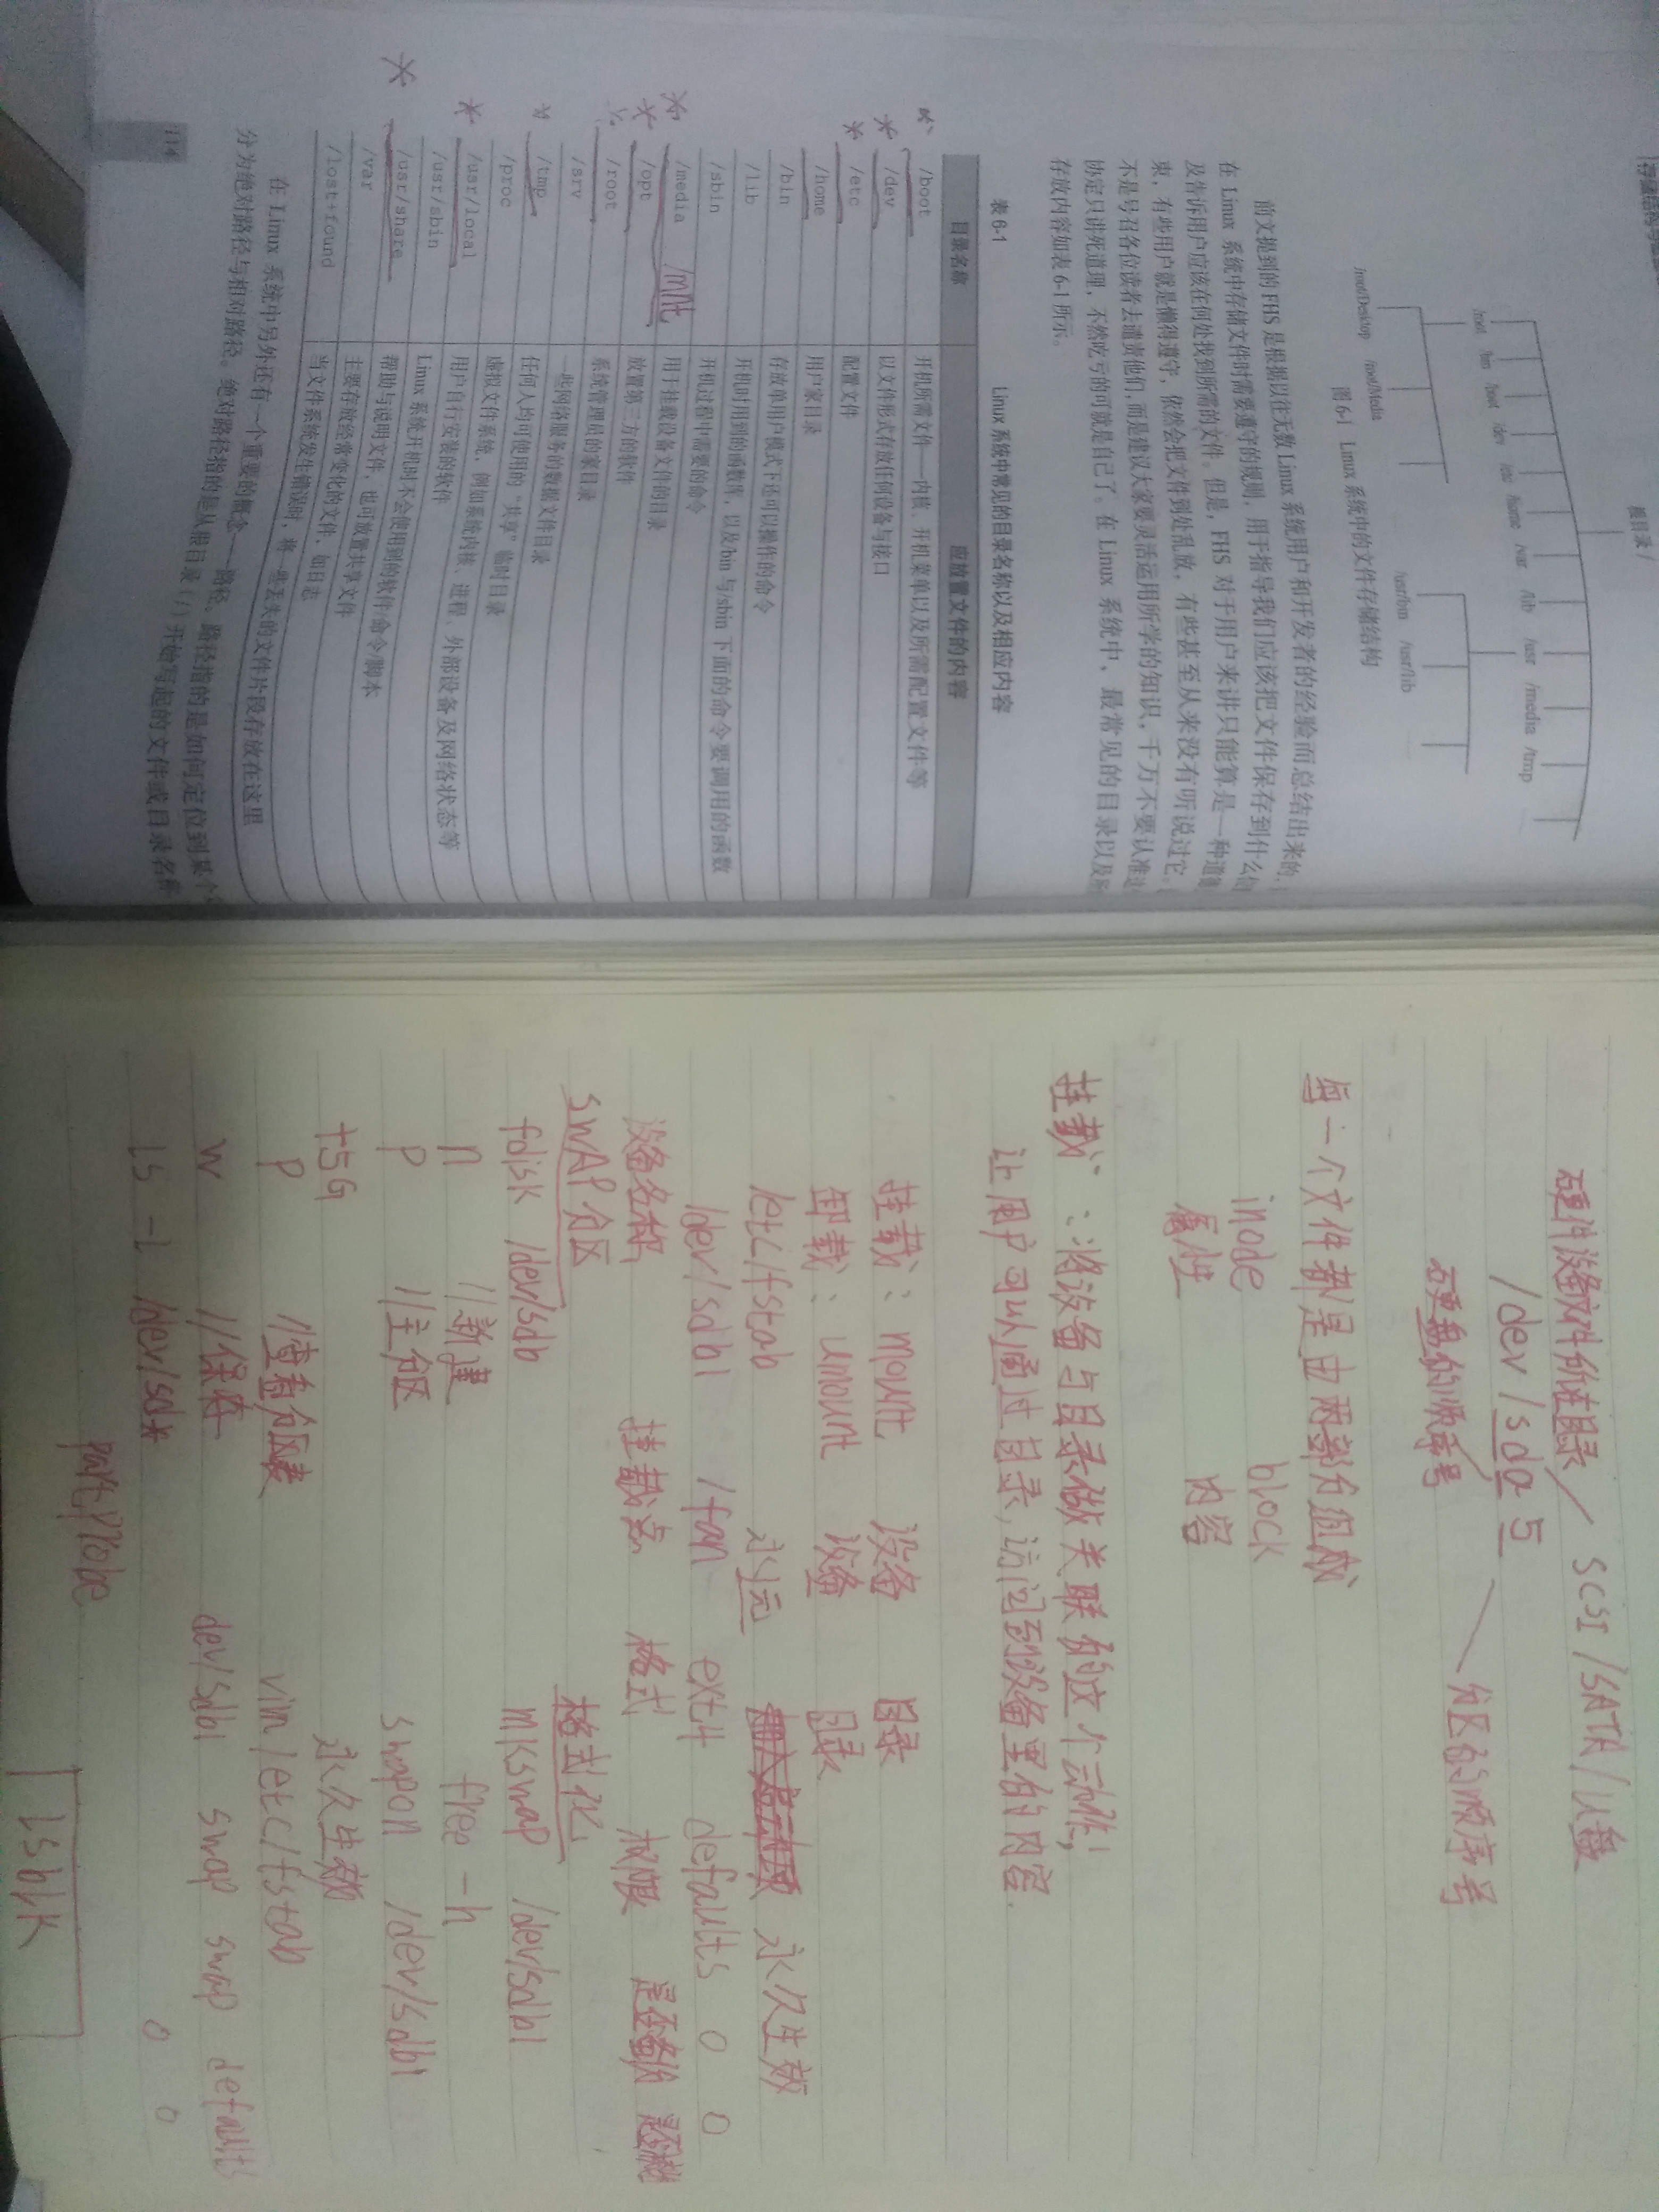 根目录 /
/root /bin /boot /dev /etc /home /var /lib /usr /media /tmp ……
/root/Desktop /root/Media …… /usr/bin /usr/lib ……
图 6-1 Linux 系统中的文件存储结构
前文提到的 FHS 是根据以往无数 Linux 系统用户和开发者的经验而总结出来的,
在 Linux 系统中存储文件时需要遵守的规则,用于指导我们应该把文件保存到什么
及告诉用户应该在何处找到所需的文件。但是,FHS 对于用户来讲只能算是一种道德
束,有些用户就是懒得遵守,依然会把文件到处乱放,有些甚至从来没有听说过它。
不是号召各位读者去谴责他们,而是建议大家要灵活运用所学的知识,千万不要认准这
协定只讲死道理,不然吃亏的可就是自己了。在 Linux 系统中,最常见的目录以及所
存放内容如表 6-1 所示。
表 6-1 Linux 系统中常见的目录名称以及相应内容
目录名称 应放置文件的内容
/boot 开机所需文件—内核、开机菜单以及所需配置文件等
/dev 以文件形式存放任何设备与接口
/etc 配置文件
/home 用户家目录
/bin 存放单用户模式下还可以操作的命令
/lib 开机时用到的函数库,以及/bin 与/sbin 下面的命令要调用的函数
/sbin 开机过程中需要的命令
/media /mnt 用于挂载设备文件的目录
/opt 放置第三方的软件
/root 系统管理员的家目录
/srv 一些网络服务的数据文件目录
/tmp 任何人均可使用的“共享”临时目录
/proc 虚拟文件系统,例如系统内核、进程、外部设备及网络状态等
/usr/local 用户自行安装的软件
/usr/sbin Linux 系统开机时不会使用到的软件/命令/脚本
/usr/share 帮助与说明文件,也可放置共享文件
/var 主要存放经常变化的文件,如日志
/lost+found 当文件系统发生错误时,将一些丢失的文件片段存放在这里
在 Linux 系统中另外还有一个重要的概念—路径。路径指的是如何定位到某个
分为绝对路径与相对路径。绝对路径指的是从根目录(/)开始写起的文件或目录名称
114
硬件设备文件的在目录 SCSI/SATA/U盘
/dev/sda 5
硬盘的顺序号 分区的顺序号
每一个文件都是由两部分组成
inode block
属性 内容
挂载:将设备与目录做关联的这个动作,
让用户可以通过目录,访问到设备里的内容.
挂载: mount 设备 目录
卸载: umount 设备 目录
/etc/fstab 永久生效
/dev/sdb1 /fan ext4 defaults 0 0
设备名称 挂载点 格式 权限 是否备份
SWAP分区 格式化
fdisk /dev/sdb mkswap /dev/sdb1
n //新建 free -h
p //主分区 swapon /dev/sdb1
+5G 永久生效
p //查看分区表 vim /etc/fstab
w //保存 dev/sdb1 swap swap defaults
ls -l /dev/sd* 0 0
partprobe
lsblk